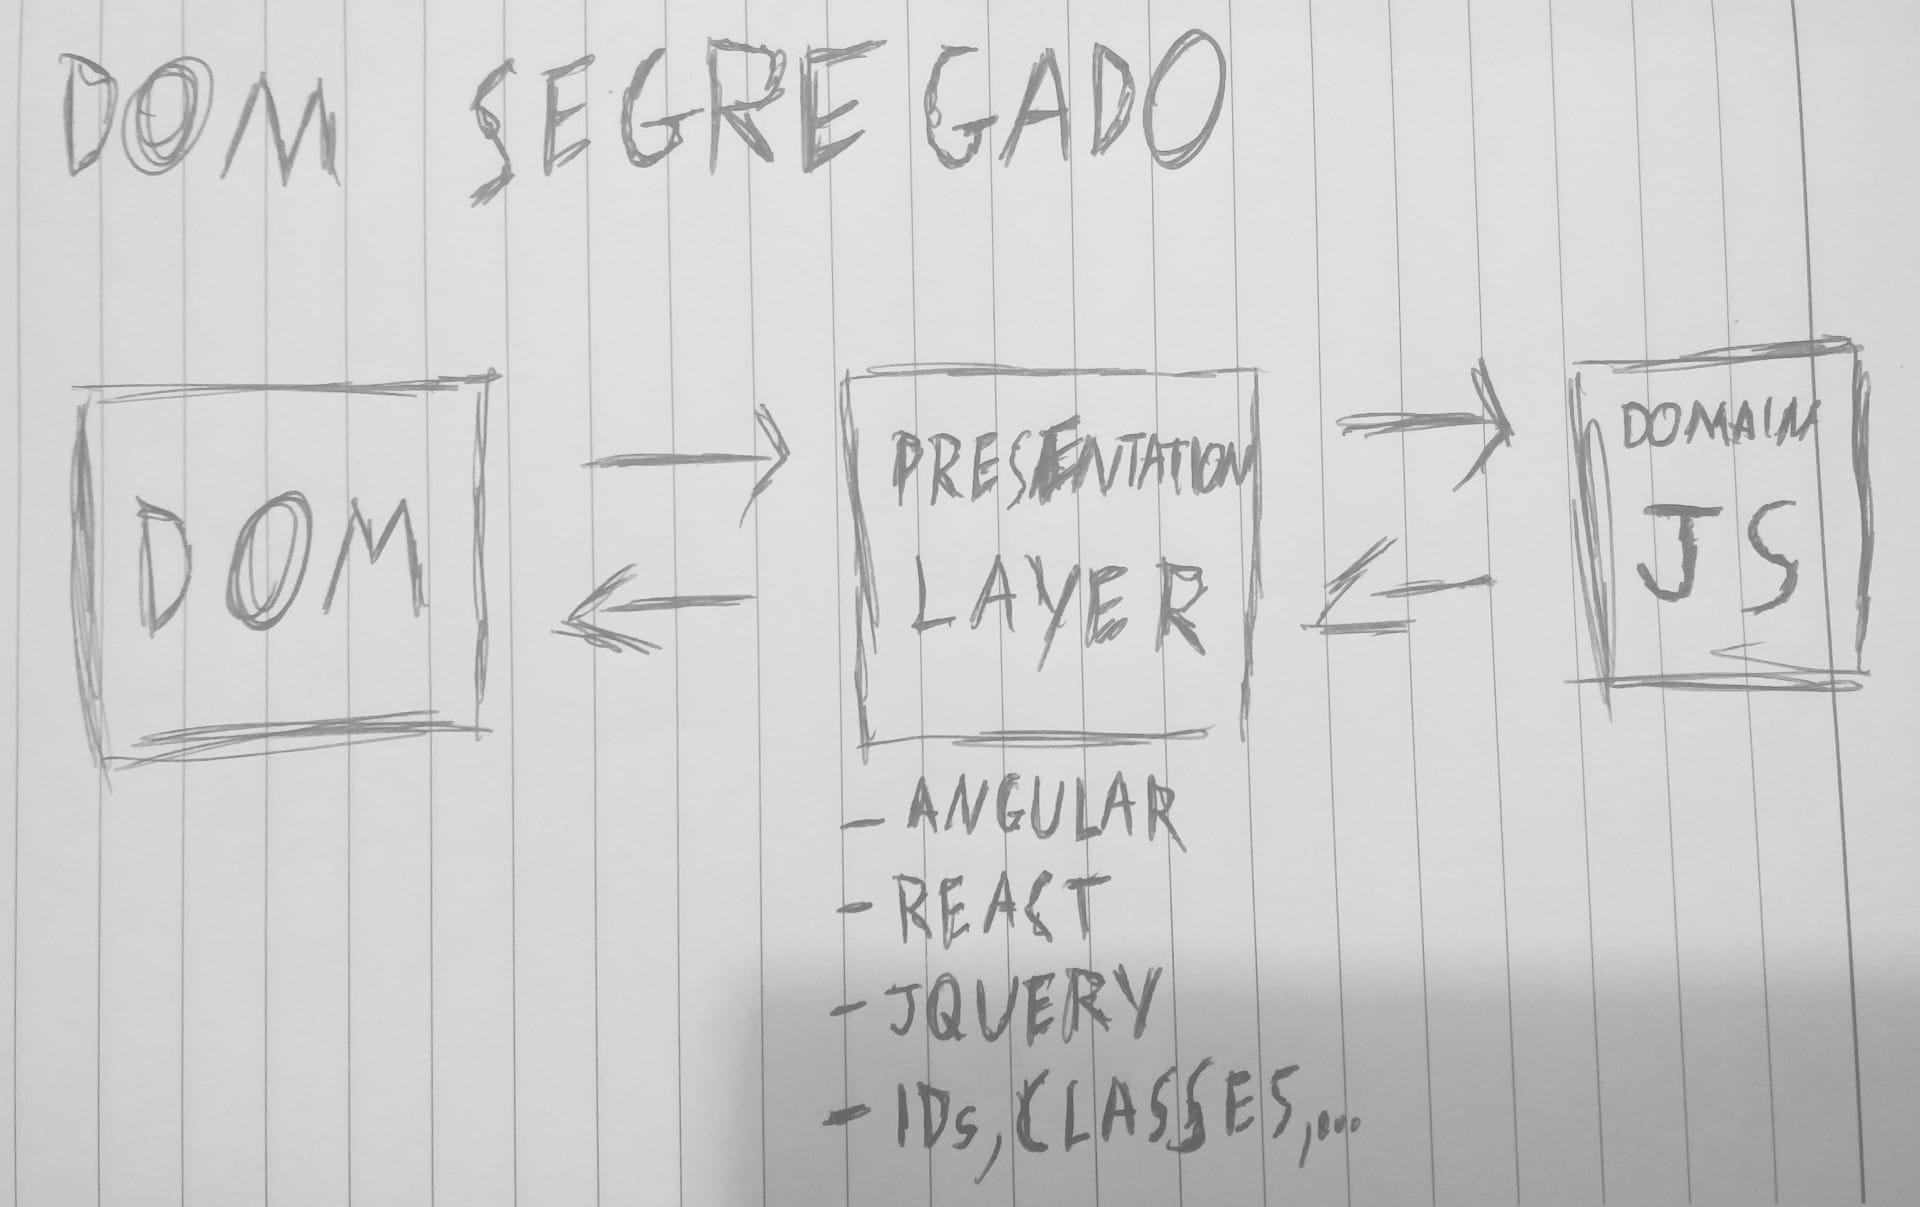 DOM SEGREGADO
DOM
PRESENTATION
LAYER
DOMAIN
JS
- ANGULAR
- REACT
- JQUERY
- IDs, CLASSES,...